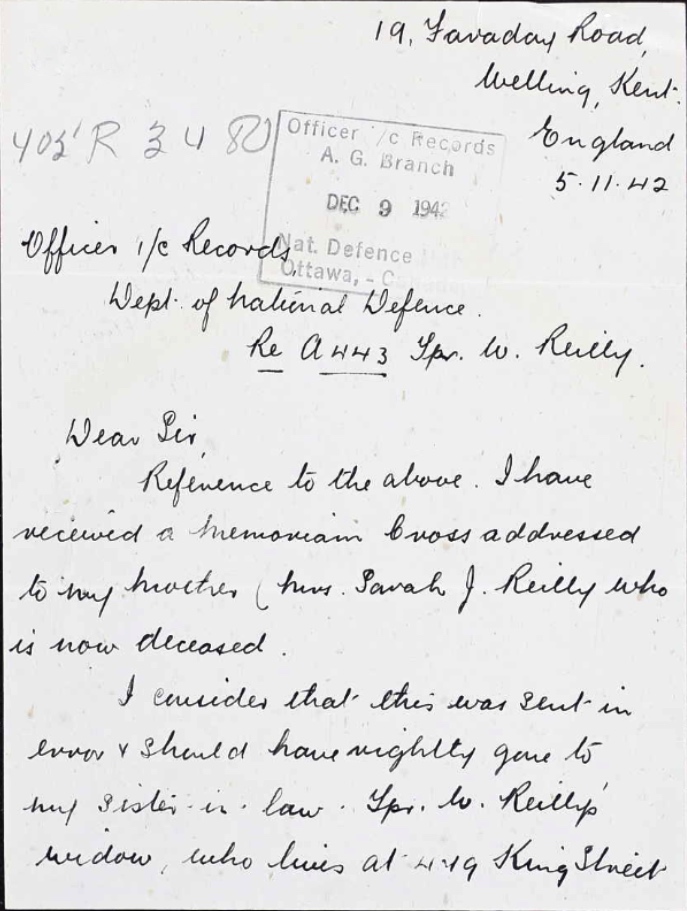 19, Faraday Road,
Welling, Kent.
England
5.11.42
405 R 3 4
Officer i/c Records
A. G. Branch
DEC 9 1942
Nat. Defence
Ottawa, - Canada
Officer i/c Records,
Dept. of National Defence.
Re A443 Spr. W. Reilly.
Dear Sir,
Reference to the above. I have
received a Memoriam Cross addressed
to my Mother (Mrs. Sarah J. Reilly who
is now deceased.
I consider that this was sent in
error & should have rightly gone to
my sister-in-law. Spr. W. Reilly's
widow, who lives at 419 King Street